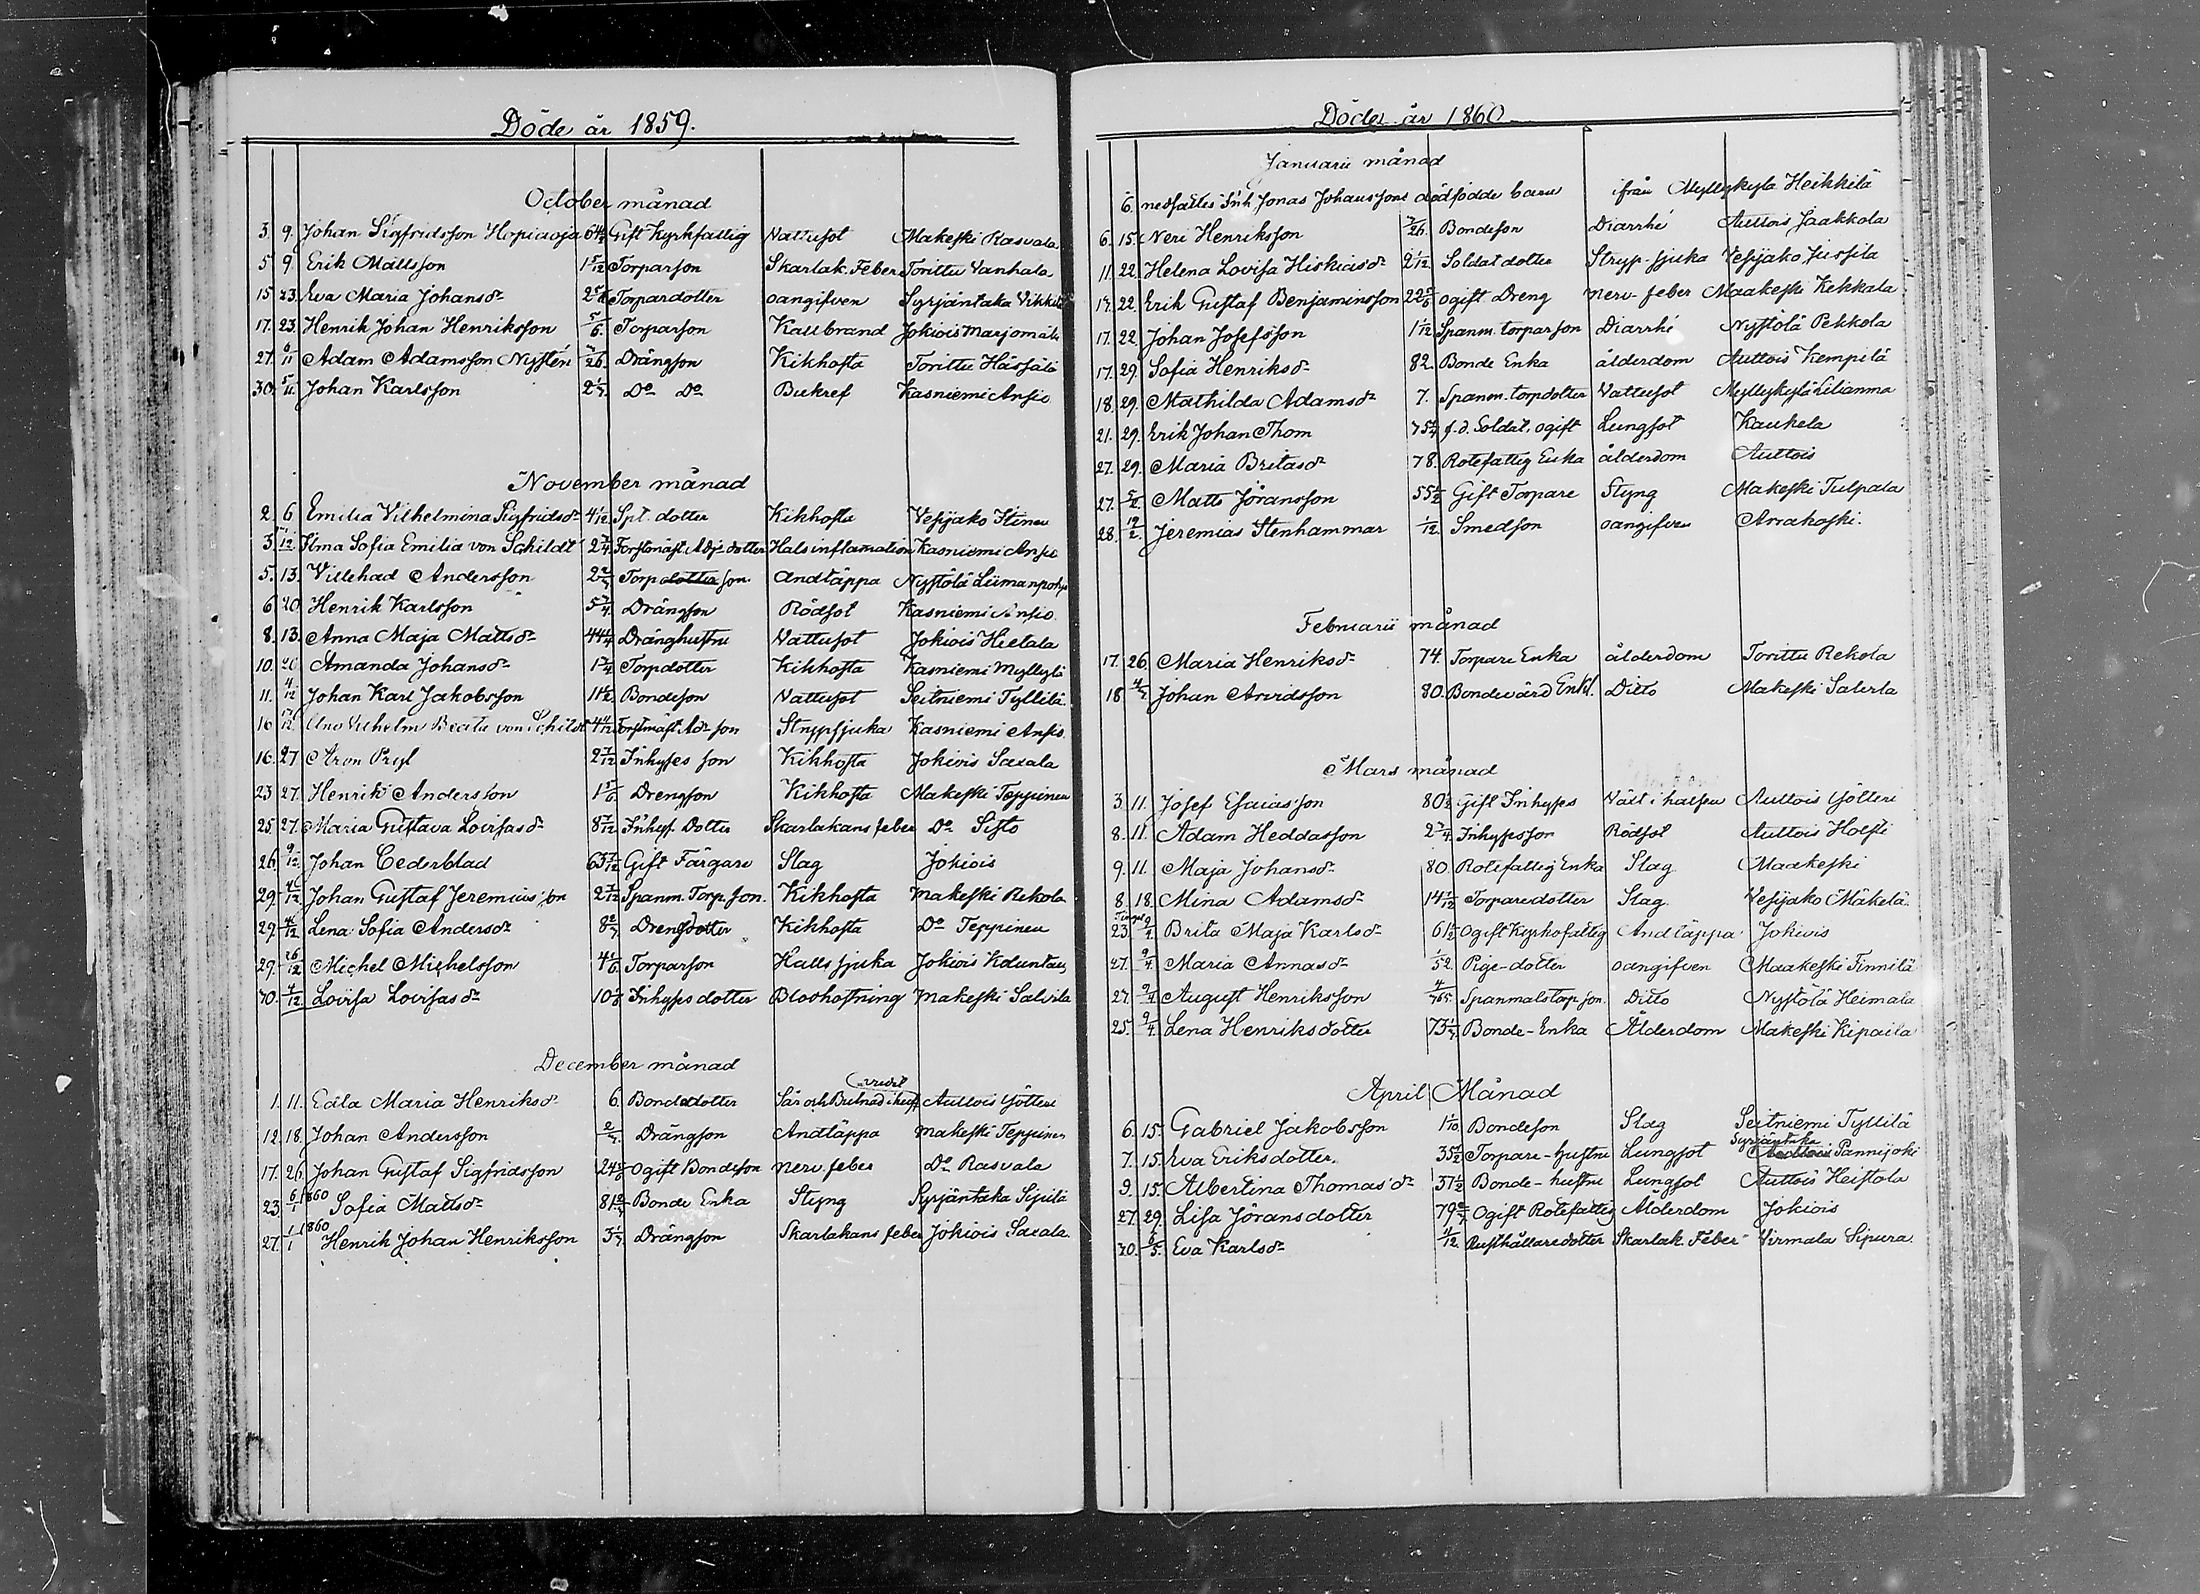 Döde år 1859.
October månad
3. 9. Johan Sigfridsson Hopiaoja 64 Gift Kyrkfattig Vattusot Makeski Rasvala
5 9 Erik Mattsson 1 5/12 Torparson Skarlak. Feber Torittu Vanhala
15 23. Eva Maria Johansdr Torpardotter oangifven Syrjäntaka
17. 23 Henrik Johan Henriksson 5/6. Torparson Kallbrand Jokiois Marjomäki
27. 6/11 Adam Adamsson Nystén /26. Drängson Kikhosta Torittu
30. Johan Karlsson Do Do Bukref Kasniemi Ansio
November månad
2. 6 Emilia Vilhelmina Sigfridsdr 4/12. Spt. dotter Kikhosta Vesijako
3. /12 Ilma Sofia Emilia von Schildt Forstmäst. Adj. dotter Halsinflamation Kasniemi Ansio
5. 13. Villehad Andersson Torpdotter son. Andtäppa Nystölä Liimanpohja
6 20 Henrik Karlsson Drängson Rödsot Kasniemi Ansio.
8. 13. Anna Maja Mattsdr Dränghustru Vattusot Jokiois Hietala
10. 20 Amanda Johansdr Torpdotter Kikhosta Kasniemi Myllylä
11. 4/12 Johan Karl Jakobsson 11 1/2 Bondeson Vattusot Seitniemi Tyllilä
16 /12 Uno Vilhelm Beate von Schildt Forstmäst. Adj son Strypsjuka Kasniemi Ansio.
16. 27 Aron Pryl 2 7/12 Inhyses son Kikhosta Jokiois Saxala
23 27. Henrik Andersson 1 5/6 Drengson Kikhosta Makeski Teppinen
25. 27. Maria Gustava Lovisasdr 8 7/12 Inhys. Dotter Skarlakansfeber Do Sisto
26. 9/12 Johan Cederblad 63 7/12 Gift Färgare Slag Jokiois
29. /12 Johan Gustaf Jeremiasson 2 7/12 Spanm. Torp. son. Kikhosta Makeski Rekola
29. 4/12 Lena Sofia Andersdr Drengdotter Kikhosta Do Teppinen
29. 26/12 Michel Michelsson 4 1/6 Torparson Hallsjuka Jokiois
30. 4/12 Lovisa Lovisasdr Inhyps dotter Blodhostning Makeski Salvila
December månad
1. 11. Edla Maria Henriksdr 6. Bondedotter Sår och Autiois Götteri
12. 18. Johan Andersson Drängson Andtäppa Makeski Teppinen
17. 26. Johan Gustaf Sigfridsson Ogift Bondeson Nerv. feber Do Rasvala
23. 6/1 1860 Sofia Mattsdr Bonde Enka Styng Syrjäntaka Sipilä
27. 1/1 1860 Henrik Johan Henriksson Drängson Skarlakans feber Jokiois Saxala.
Döde år 1860
Januarii månad
6. nedsattes Inh. Jonas Johanssons dödfödde barn ifrån Myllykylä Heikkilä
6. 15. Neri Henriksson /26. Bondeson Diarrhé Auttois Jaakkola
11. 22. Helena Lovisa Hiskiasdr 2 1/12. Soldat dotter Stryp-sjuka Vesijako Jussila
17. 22. Erik Gustaf Benjaminsson 22 5/6 ogift Dreng Nerv-feber Maakeski Kekkala
17. 22. Johan Josefsson 1 1/12 Spanm. torparson Diarrhé Nystölä Pekkola
17. 29. Sofia Henriksdr 82. Bonde Enka ålderdom Auttois Kempilä
18. 29. Mathilda Adamsdr 7. Spanm. torpdotter Vattusot Myllykylä Lilianma
21. 29. Erik Johan Thom f.d. Soldat, ogift Lungsot Kaukela
27. 29. Maria Britasdr 78. Rotefattig Enka ålderdom Auttois
27. 5/2. Matts Jöransson 55 1/2 Gift Torpare Styng Makeski Tulpala
28. 12/2 Jeremias Stenhammar 1/12. Smedson oangifven Arrakoski.
Februarii månad
17. 26. Maria Henriksdr 74. Torpare Enka ålderdom Torittu Rekola
18 Johan Arvidsson 80. Bondevärd Enkl. Ditto Makeski Saterla
Mars månad
3. 11. Josef Esaiasson 80 1/2 Gift Inhyses Vält i halsen Auttois Götteri
8. 11. Adam Heddasson 2 3/4. Inhypsson Rödsot Auttois Hoesti
9. 11. Maja Johansdr 80. Rotefattig Enka Slag Maakeski
8. 18. Mina Adamsdr 14 1/12 Torparedotter Slag. Vesijako Mäkelä.
23. 9/4 Brita Maja Karlsdr 61 1/2 Ogift Kyrkofattig Andtäppa Jokiois
27. 9/4 Maria Annasdr 1/52. Pige-dotter oangifven Maakeski Finnilä
27. 9/4 August Henriksson 4/365. Spanmalstorp. son. Ditto Nystölä Heimala
25. 9/4. Lena Henriksdotter Bonde-Enka Ålderdom Makeski Kipaila
April Månad
6. 15. Gabriel Jakobsson 1/10. Bondeson Slag Seitniemi Tyllilä
7. 15. Eva Eriksdotter. 35 1/2 Torpare-hustru Lungsot Syrjäntaka Pannijoki
9. 15. Albertina Thomasdr 37 1/2 Bonde-hustru Lungsot Auttois Heistola
27. 29. Lisa Jöransdotter Ogift Rotefattig Ålderdom Jokiois
30. 6/5. Eva Karlsdr /12. Rusthållaredotter Skarlak. Feber Virmala Sipura.